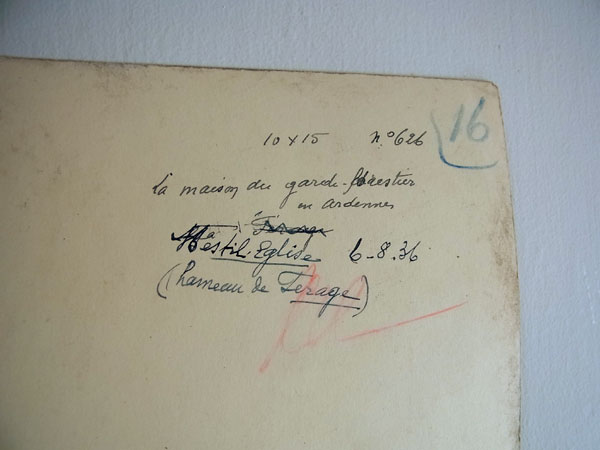 16
10 x 15 n° 626
la maison du garde-forestier
en ardennes
Mesnil-Eglise 6-8.36
(hameau de Ferage)